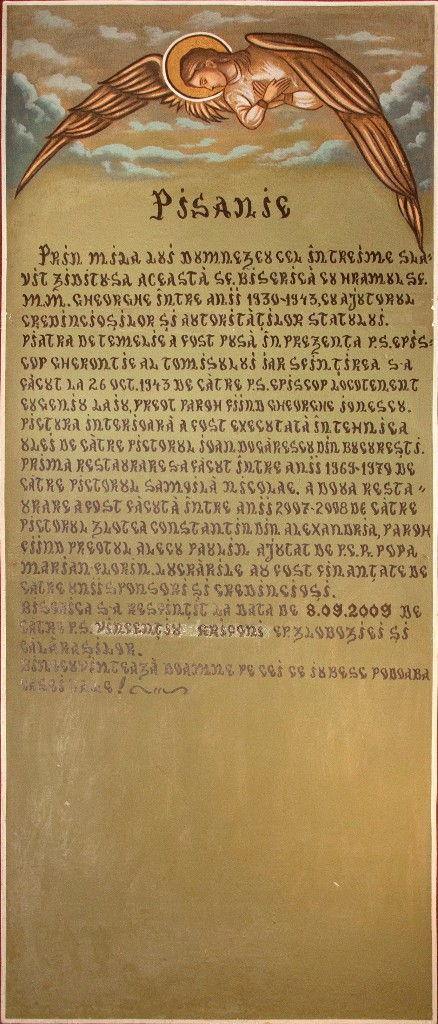 Pisanie
Prin mila lui Dumnezeu cel în treime slă-
vit ziditu-s-a această Sf. Biserică cu hramul Sf.
M.M. Gheorghe între anii 1930-1943, cu ajutorul
credincioșilor și autorităților statului.
Piatra de temelie a fost pusă în prezența P.S. Epis-
cop Gherontie al Tomisului iar sfințirea s-a
făcut la 26 oct. 1943 de către P.S. Episcop locotenent
Eugeniu Laiu, preot paroh fiind Gheorghe Ionescu.
Pictura interioară a fost executată în tehnica
ulei de către pictorul Ioan Dogărescu din București.
Prima restaurare s-a făcut între anii 1969-1970 de
către pictorul Samoilă Nicolae. A doua resta-
urare a fost făcută între anii 2007-2008 de către
pictorul Zlotea Constantin din Alexandria, paroh
fiind preotul Alecu Paulin ajutat de P.S.P. Popa
Marian-Florin. Lucrările au fost finanțate de
către unii sponsori și credincioși.
Biserica s-a resfințit la data de 8.09.2009 de
către P.S. Vincențiu Grifoni Ep. Sloboziei și
Călărașilor.
Binecuvintează Doamne pe cei ce iubesc podoaba
casei Tale!